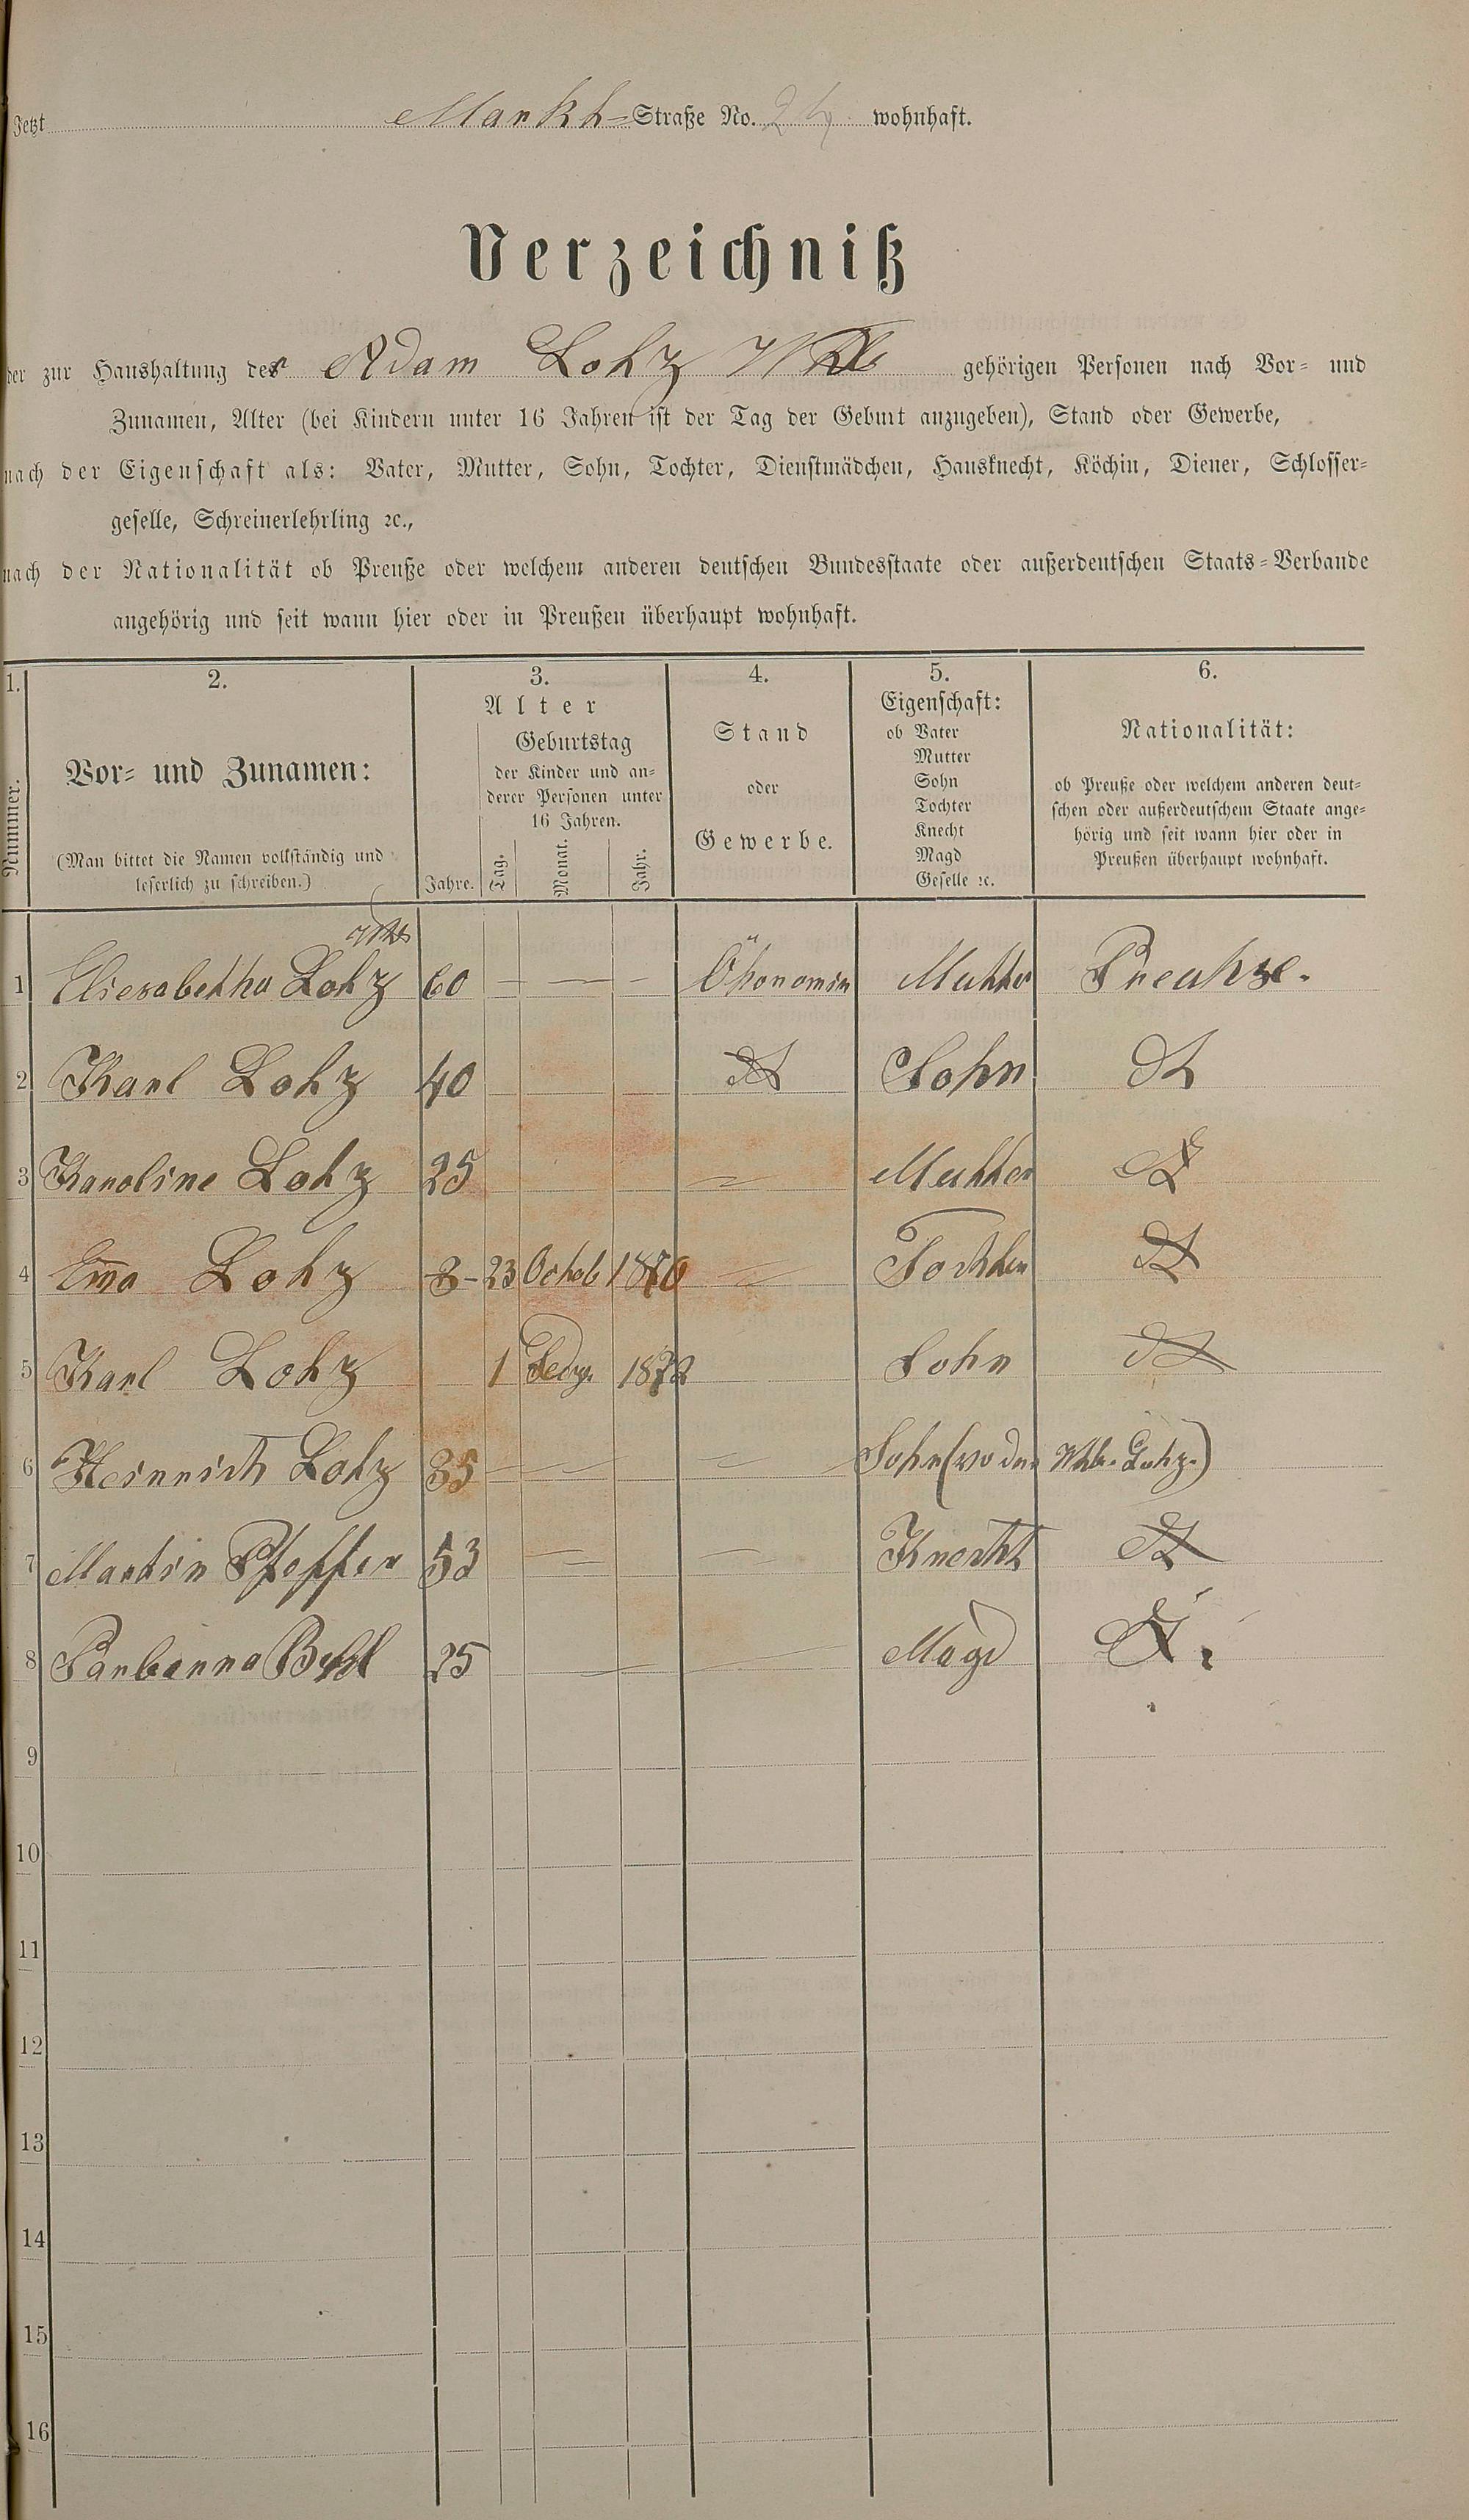 Jetzt Markt-Straße No. 24 wohnhaft.
Verzeichniß
der zur Haushaltung der Adam Lotz Wtb gehörigen Personen nach Vor- und
Zunamen, Alter (bei Kindern unter 16 Jahren ist der Tag der Geburt anzugeben), Stand oder Gewerbe,
nach der Eigenschaft als: Vater, Mutter, Sohn, Tochter, Dienstmädchen, Hausknecht, Köchin, Diener, Schlosser-
geselle, Schreinerlehrling ꝛc.,
nach der Nationalität ob Preuße oder welchem anderen deutschen Bundesstaate oder außerdeutschen Staats-Verbande
angehörig und seit wann hier oder in Preußen überhaupt wohnhaft.
1. 2. 3. 4. 5. 6.
Nummer.
Vor- und Zunamen:
(Man bittet die Namen vollständig und
leserlich zu schreiben.)
Alter
Jahre.
Geburtstag
der Kinder und an-
derer Personen unter
16 Jahren.
Tag. Monat. Jahr.
Stand
oder
Gewerbe.
Eigenschaft:
ob Vater
Mutter
Sohn
Tochter
Knecht
Magd
Geselle ꝛc.
Nationalität:
ob Preuße oder welchem anderen deut-
schen oder außerdeutschem Staate ange-
hörig und seit wann hier oder in
Preußen überhaupt wohnhaft.
1 Eliesabetha Lotz 60 — — — Ökonomin Mutter Preuhse.
2 Karl Lotz 40 dt Sohn dt
3 Karoline Lotz 25 Mutter dt
4 Em̅a Lotz 3 - 23 Octob 1870 Tochter dt
5 Karl Lotz 1 1872 Sohn dt
6 Heinrich Lotz 35 Sohn (vo der Wtb. Lotz.)
7 Martin Pfeffer 53 Knecht dt
8 25 Magd dt
9
10
11
12
13
14
15
16